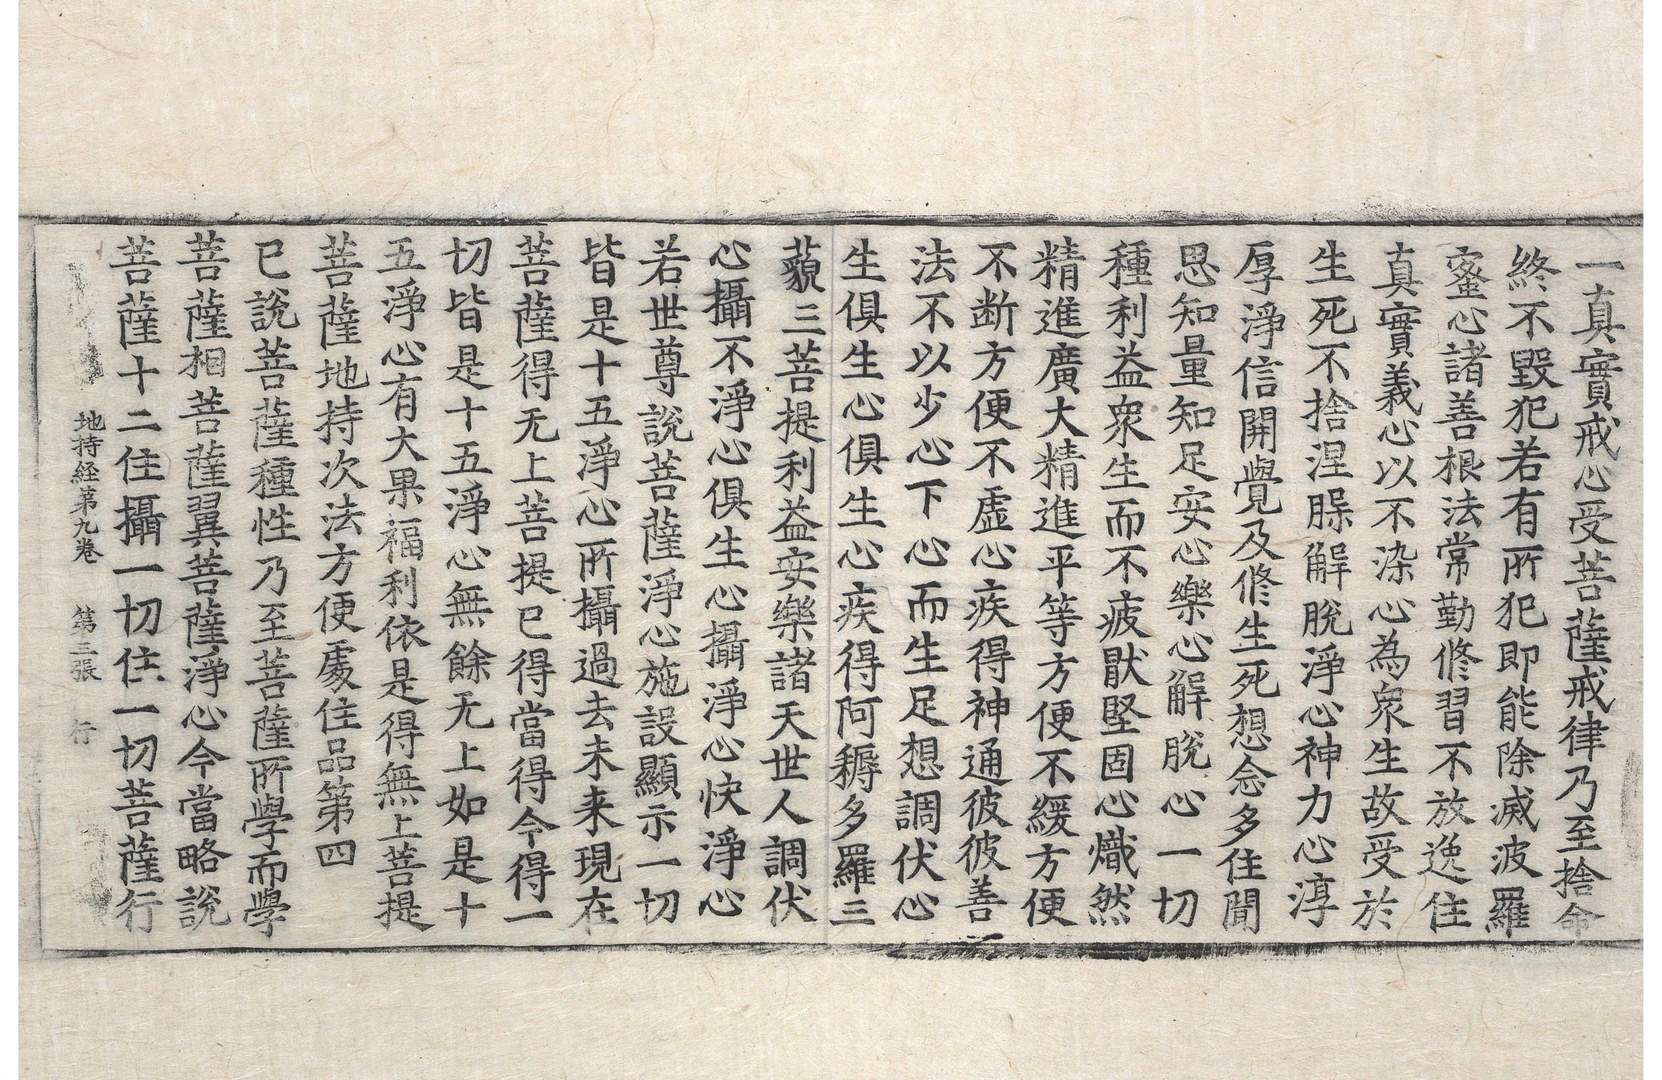 一真實戒心受菩薩戒律乃至捨命
終不毀犯若有所犯即能除滅波羅
蜜心諸善根法常勤修習不放逸住
真實義心以不染心為衆生故受於
生死不捨涅槃解脫淨心神力心淳
厚淨信開覺及修生死想念多住聞
思知量知足安心樂心解脫心一切
種利益衆生而不疲猒堅固心熾然
精進廣大精進平等方便不緩方便
不斷方便不虛心疾得神通彼彼善
法不以少心下心而生足想調伏心
生俱生心俱生心疾得阿耨多羅三
藐三菩提利益安樂諸天世人調伏
心攝不淨心俱生心攝淨心快淨心
若世尊說菩薩淨心施設顯示一切
皆是十五淨心所攝過去未来現在
菩薩得无上菩提已得當得今得一
切皆是十五淨心無餘无上如是十
五淨心有大果福利依是得無上菩提
菩薩地持次法方便處住品第四
已說菩薩種性乃至菩薩所學而學
菩薩相菩薩翼菩薩淨心今當略說
菩薩十二住攝一切住一切菩薩行
地持経第九卷 第三張 行